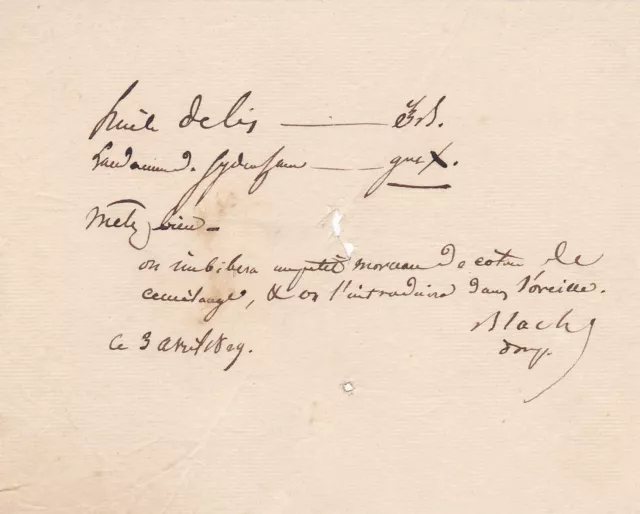 huile de lis ——— ʒß.
Laudanum d. Sydenham — gtts X.
Mêlez bien —
on imbibera un petit morceau de coton de
ce mélange, & on l'introduira dans l'oreille.
Blache
ce 3 avril 1829.